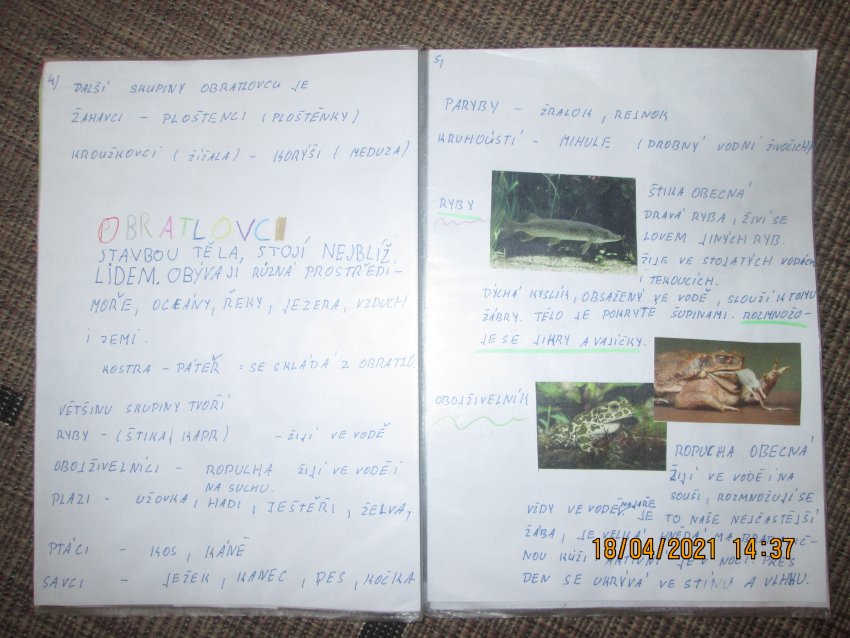 4)
DALŠÍ SKUPINY OBRATLOVCU JE
ŽAHAVCI - PLOŠTENCI (PLOŠTĚNKY)
KROUŽKOVCI (ŽÍŽALA) - KORÝŠI (MEDUZA)
OBRATLOVCI
STAVBOU TĚLA, STOJÍ NEJBLÍŽ,
LIDEM. OBÝVAJI RŮZNÁ PROSTŘEDÍ -
MOŘE, OCEÁNY, ŘEKY, JEZERA, VZDUCH
I ZEMI.
KOSTRA - PÁTEŘ = SE SKLÁDÁ Z OBRATLŮ.
VĚTŠINU SKUPINY TVOŘÍ
RYBY - (ŠTIKA/KAPR) - ŽIJÍ VE VODĚ
OBOJŽIVELNÍCI - ROPUCHA ŽIJÍ VE VODĚ I
NA SUCHU.
PLAZI - UŽOVKA, HADI, JEŠTĚŘI, ŽELVA,
PTÁCI - KOS, KÁNĚ
SAVCI - JEŽEK, KANEC, PES, KOČKA
5)
PARYBY - ŽRALOK, REJNOK
KRUHOÚSTÍ - MIHULE (DROBNÝ VODNÍ ŽIVOČICH)
RYBY
ŠTIKA OBECNÁ
DRAVÁ RYBA, ŽIVÍ SE
LOVEM JINÝCH RYB.
ŽIJE VE STOJATÝCH VODÁCH
I TEKOUCÍCH.
DÝCHÁ KYSLÍK, OBSAŽENÝ VE VODĚ, SLOUŽÍ K TOMU
ŽÁBRY. TĚLO JE POKRYTÉ ŠUPINAMI. ROZMNOŽO-
JE SE JIKRY A VAJÍČKY.
OBOJŽIVELNÍK
ROPUCHA OBECNÁ
ŽIJÍ VE VODĚ I NA
SOUŠI, ROZMNOŽUJÍ SE
VŽDY VE VODĚ. JE TO NAŠE NEJČASTĚJŠÍ
ŽÁBA, JE VELKÁ HNĚDÁ MA
NOU KŮŽI AKTIVNÍ JE V NOCI. PŘES
DEN SE UKRÝVÁ VE STÍNU A VLHKU.
18/04/2021 14:37